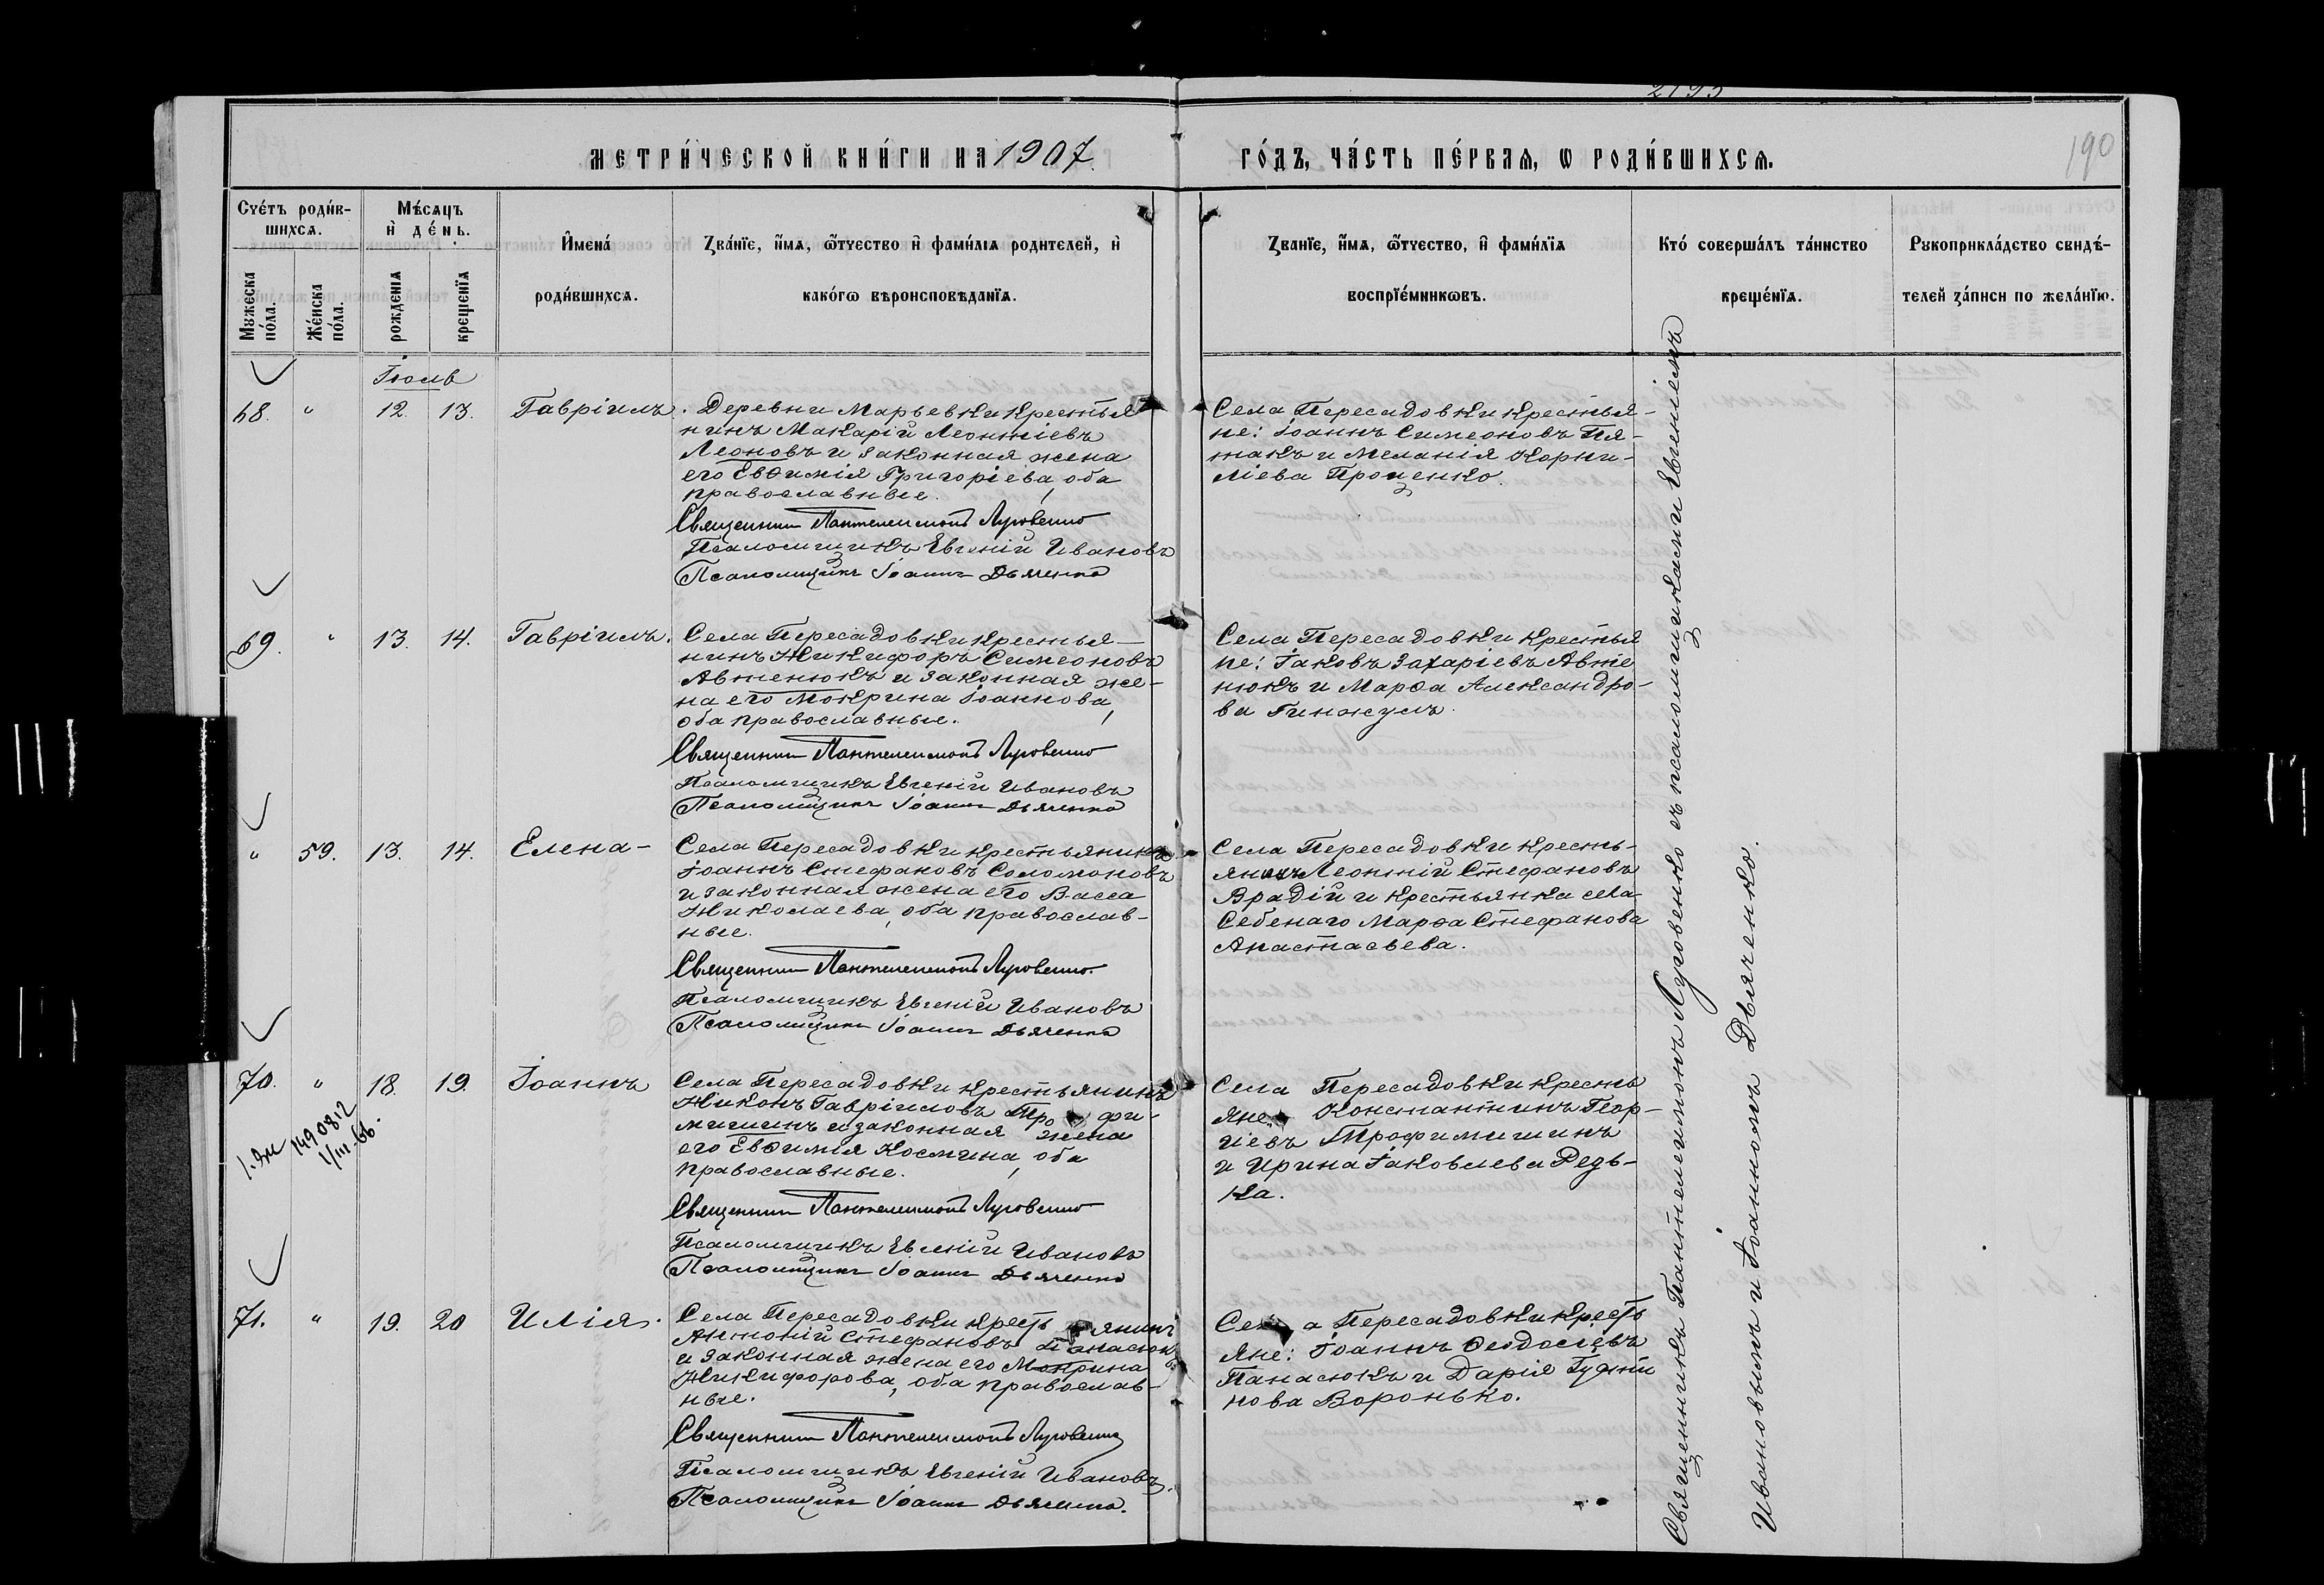 2193
190
МЕТРИ́ЧЕСКОЙ КНИ́ГИ НА 1907.
ГО́ДЪ, ЧА́СТЬ ПЕ́РВАѦ, Ѡ РОДИ́ВШИХСѦ.
Сче́тъ роди́в-
шихсѧ.
Мꙋжеска
по́ла.
Же́нска
по́ла.
Мѣ́сѧцъ
и҆ де́нь.
рожденїѧ
крещенїѧ
И҆мена́
роди́вшихсѧ.
Зва́нїе, и҆́мѧ, ѻ҆́тчество и҆ фами́лїѧ родителей, и҆
како́гѡ вѣроисповѣданїѧ.
Званїе, и҆́мѧ, ѻ҆́тчество, и҆ фами́лїѧ
воспрїе́мникѡвъ.
Кто́ соверша́лъ та́инство
креще́нїѧ.
Рꙋкоприкла́дство свидѣ́-
телей за́писи по жела́нїю.
Іюль
68. " 12. 13. Гавріилъ.
Деревни Марьевки крестья
нинъ Макарій Леонтіевъ
Леоновъ и законная жена
его Евѳимія Григоріева, оба
православные.
Священник Пантелеимонъ Луговенко
Псаломщикъ Евгеній Ивановъ
Псаломщикъ Іоаннъ Дьяченко
Села Пересадовки крестья-
не: Іоаннъ Симеоновъ Пя-
такъ и Меланія Корни-
ліева Проценко.
69. " 13. 14. Гавріилъ.
Села Пересадовки крестья-
нинъ Никифоръ Симеоновъ
Автенюкъ и законная же-
на его Мокрина Іоаннова,
оба православные.
Священник Пантелеимонъ Луговенко
Псаломщикъ Евгеній Ивановъ
Псаломщикъ Іоаннъ Дьяченко
Села Пересадовки крестья
не: Іаковъ Захаріевъ Авте
нюкъ и Марѳа Александро-
ва Гинжулъ.
" 59. 13. 14. Елена-
Села Пересадовки крестьянинъ
Іоаннъ Стефановъ Соломоновъ
и законная жена его Васса
Николаева, оба православ-
ные.
Священник Пантелеимонъ Луговенко.
Псаломщикъ Евгеній Ивановъ
Псаломщикъ Іоаннъ Дьяченко
Села Пересадовки кресть-
янинъ Леонтій Стефановъ
Врадій и крестьянка села
Себенаго Марѳа Стефанова
Анастасьева.
70. " 18. 19. Іоаннъ
149 0812
1/III-66.
Села Пересадовки крестьянинъ
Никонъ Гавріиловъ Тро фи-
мишинъ и законная жена
его Евѳимія Космина, оба
православные.
Священник Пантелеимонъ Луговенко
Псаломщикъ Евгеній Ивановъ
Псаломщикъ Іоаннъ Дьяченко
Села Пересадовки кресть
яне: Константинъ Геор-
гіевъ Трофимишинъ
и Ирина Іаковлева Редь-
ка.
71. " 19. 20 Илія.
Села Пересадовки крестьянинъ
Антоній Стефановъ Панасюкъ
и законная жена его Мокрина
Никифорова, оба православ-
ные.
Священник Пантелеимонъ Луговенко
Псаломщикъ Евгеній Ивановъ.
Псаломщикъ Іоаннъ Дьяченко.
Села Пересадовки кресть
яне: Іоаннъ Ѳеодосіевъ
Панасюкъ и Дарія Іусти
нова Воронько.
Священникъ Пантелеимонъ Луговенко съ псаломщиками Евгеніемъ
Ивановымъ и Іоанномъ Дьяченко.